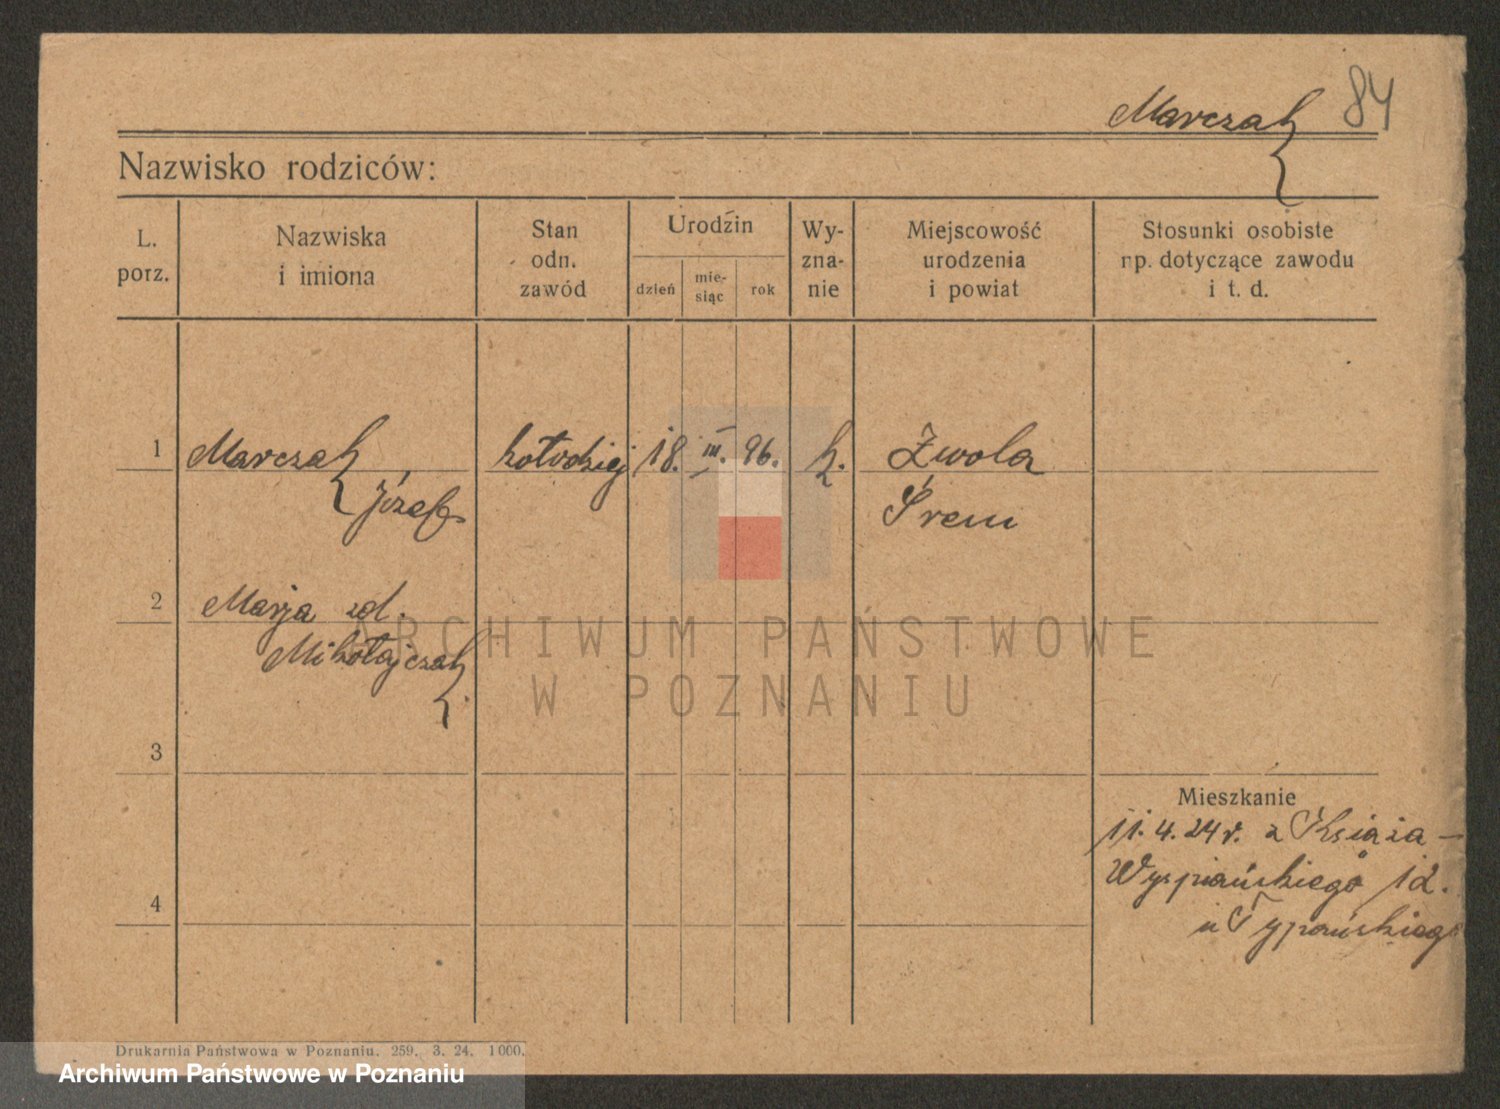 Marczak 84
Nazwisko rodziców:
L. porz.
Nazwiska i imiona
Stan odn. zawód
Urodzin
dzień
mie-
siąc
rok
Wy-
zna-
nie
Miejscowość
urodzenia
i powiat
Stosunki osobiste
np. dotyczące zawodu
i t. d.
1 Marczak kołodziej 18. III. 96. k. Zwola
Józef Śrem
2 Marja zd.
Mikołajczak
3
Mieszkanie
11.4.24 r. z Książa —
Wyspiańskiego 12.
4
u
Drukarnia Państwowa w Poznaniu. 259. 3. 24. 1000.
ARCHIWUM PAŃSTWOWE
W POZNANIU
Archiwum Państwowe w Poznaniu